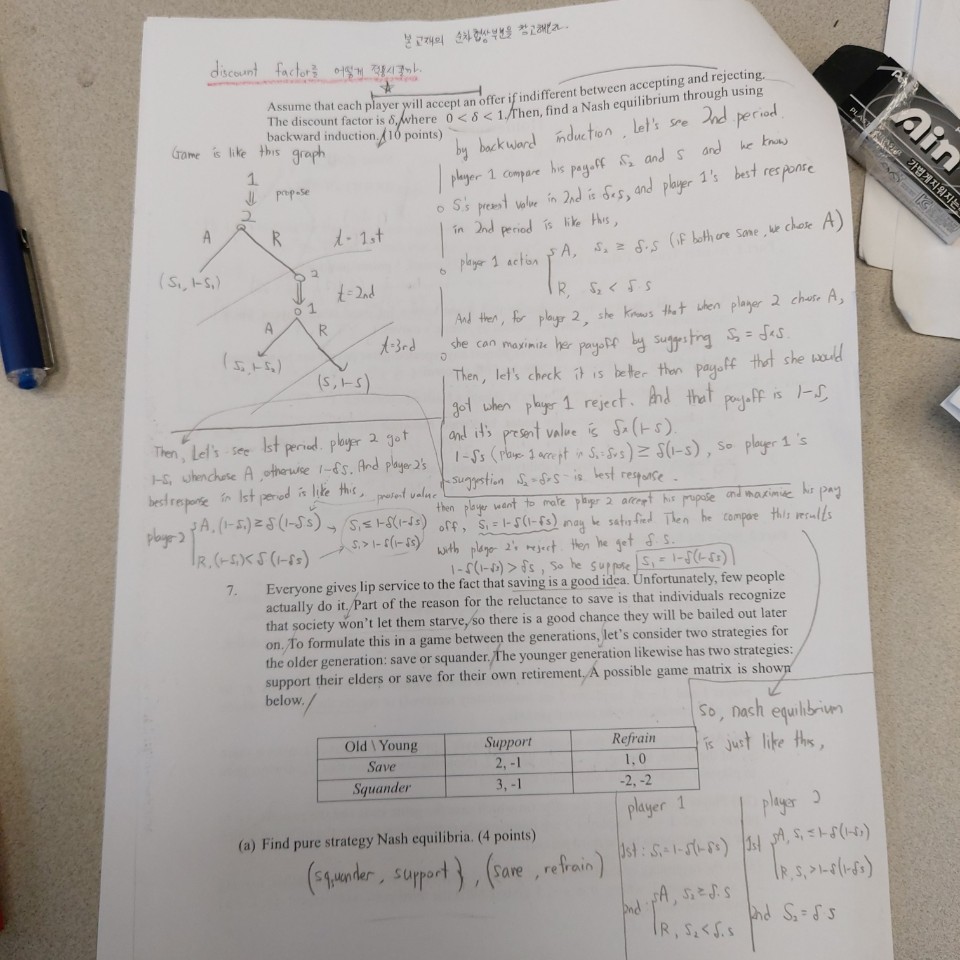 본 교재의 순차협상부분을 참고해보라.
discount factor를 어떻게
Assume that each player will accept an offer if indifferent between accepting and rejecting.
The discount factor is δ, where 0 < δ < 1. Then, find a Nash equilibrium through using
backward induction. (10 points)
Game is like this graph
1
propose
2
A R t=1st
(S₁, 1-S₁)
2
t=2nd
1
A R
t=3rd
(S₂, 1-S₂)
(S, 1-S)
by backward induction. Let's see 2nd period.
player 1 compare his payoff S₂ and S and we know
S's present value in 2nd is δ×S, and player 1's best response
in 2nd period is like this,
player 1 action { A, S₂ ≥ δ·S (if both are same, we chose A)
R, S₂ < δ·S
And then, for player 2, she knows that when player 2 chose A,
she can maximize her payoff by suggesting S₂ = δ×S.
Then, let's check it is better than payoff that she would
got when player 1 reject. And that payoff is 1-S,
and it's present value is δ×(1-S).
1-δs (player 1 accept in S₂=δ×S) ≥ δ(1-S), so player 1's
suggestion S₂=δ×S is best response.
Then, Let's see 1st period. player 2 got
1-S₁ when chose A, otherwise 1-δS. And player 2's
best response in 1st period is like this, present value
player 2 { A, (1-S₁) ≥ δ(1-δS) → S₁ ≤ 1-δ(1-δS)
R, (1-S₁) < δ(1-δS) → S₁ > 1-δ(1-δS)
then player want to make player 2 accept his propose and maximize his pay
off, S₁ = 1-δ(1-δS) may be satisfied Then he compare this results
with player 2's reject. then he get δ·S.
1-δ(1-δS) > δS, So he suppose S₁ = 1-δ(1-δS)
7. Everyone gives lip service to the fact that saving is a good idea. Unfortunately, few people
actually do it. Part of the reason for the reluctance to save is that individuals recognize
that society won't let them starve, so there is a good chance they will be bailed out later
on. To formulate this in a game between the generations, let's consider two strategies for
the older generation: save or squander. The younger generation likewise has two strategies:
support their elders or save for their own retirement. A possible game matrix is shown
below.
Old \ Young Support Refrain
Save 2, -1 1, 0
Squander 3, -1 -2, -2
(a) Find pure strategy Nash equilibria. (4 points)
(squander, support}, (save, refrain)
so, nash equilibrium
is just like this,
player 1
1st : S₁=1-δ(1-δS)
2nd { A, S₂ ≥ δ·S
R, S₂ < δ·S
player 2
1st { A, S₁ ≤ 1-δ(1-δS)
R, S₁ > 1-δ(1-δS)
2nd S₂ = δ·S
Ain